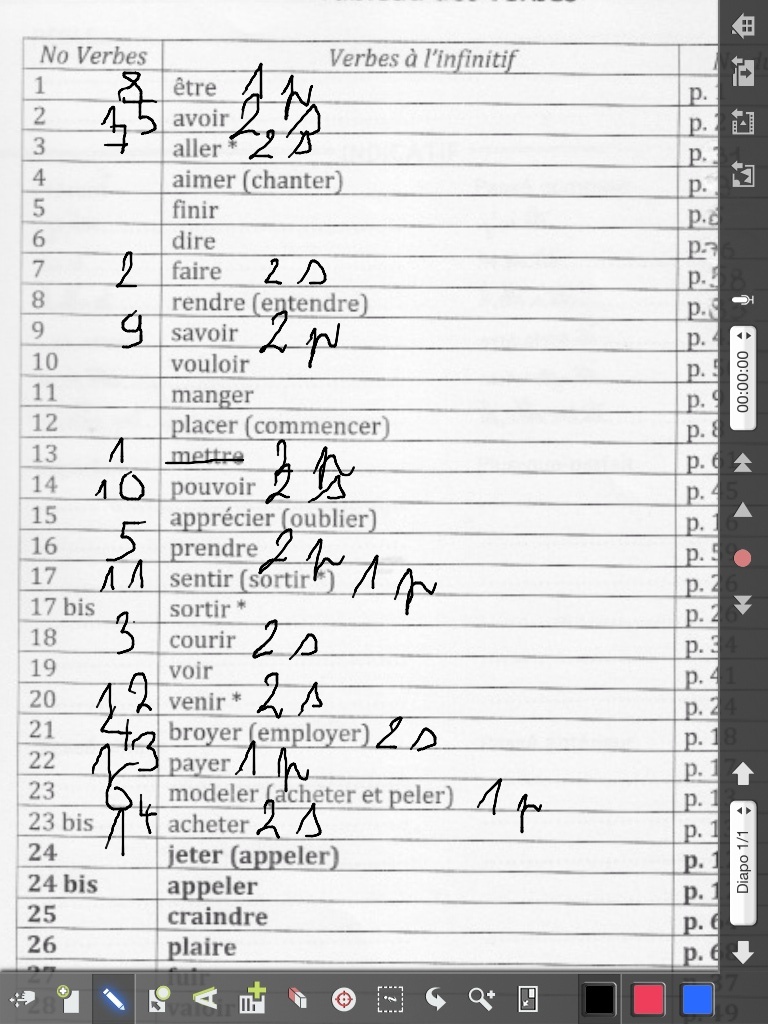 No Verbes Verbes à l'infinitif
1 8 être 1 p p. 1
2 15 avoir 2 p p. 2
3 7 aller * 2 s p. 34
4 aimer (chanter) p.
5 finir p.
6 dire p. 76
7 2 faire 2 s p. 58
8 rendre (entendre) p.
9 9 savoir 2 p p. 4
10 vouloir p. 5
11 manger p. 9
12 placer (commencer) p. 8
13 1 mettre 2 p p. 61
14 10 pouvoir 2 s p. 45
15 apprécier (oublier) p. 16
16 5 prendre 2 p p. 59
17 11 sentir (sortir *) 1 p p. 26
17 bis sortir * p. 26
18 3 courir 2 s p. 34
19 voir p. 41
20 12 venir * 2 s p. 24
21 4 broyer (employer) 2 s p. 18
22 13 payer 1 p p. 17
23 6 modeler (acheter et peler) 1 p p. 12
23 bis 14 acheter 2 s p. 1
24 jeter (appeler) p. 1
24 bis appeler p. 1
25 craindre p. 6
26 plaire p. 6
27 fuir p. 37
28 valoir p. 49
00:00:00
Diapo 1/1